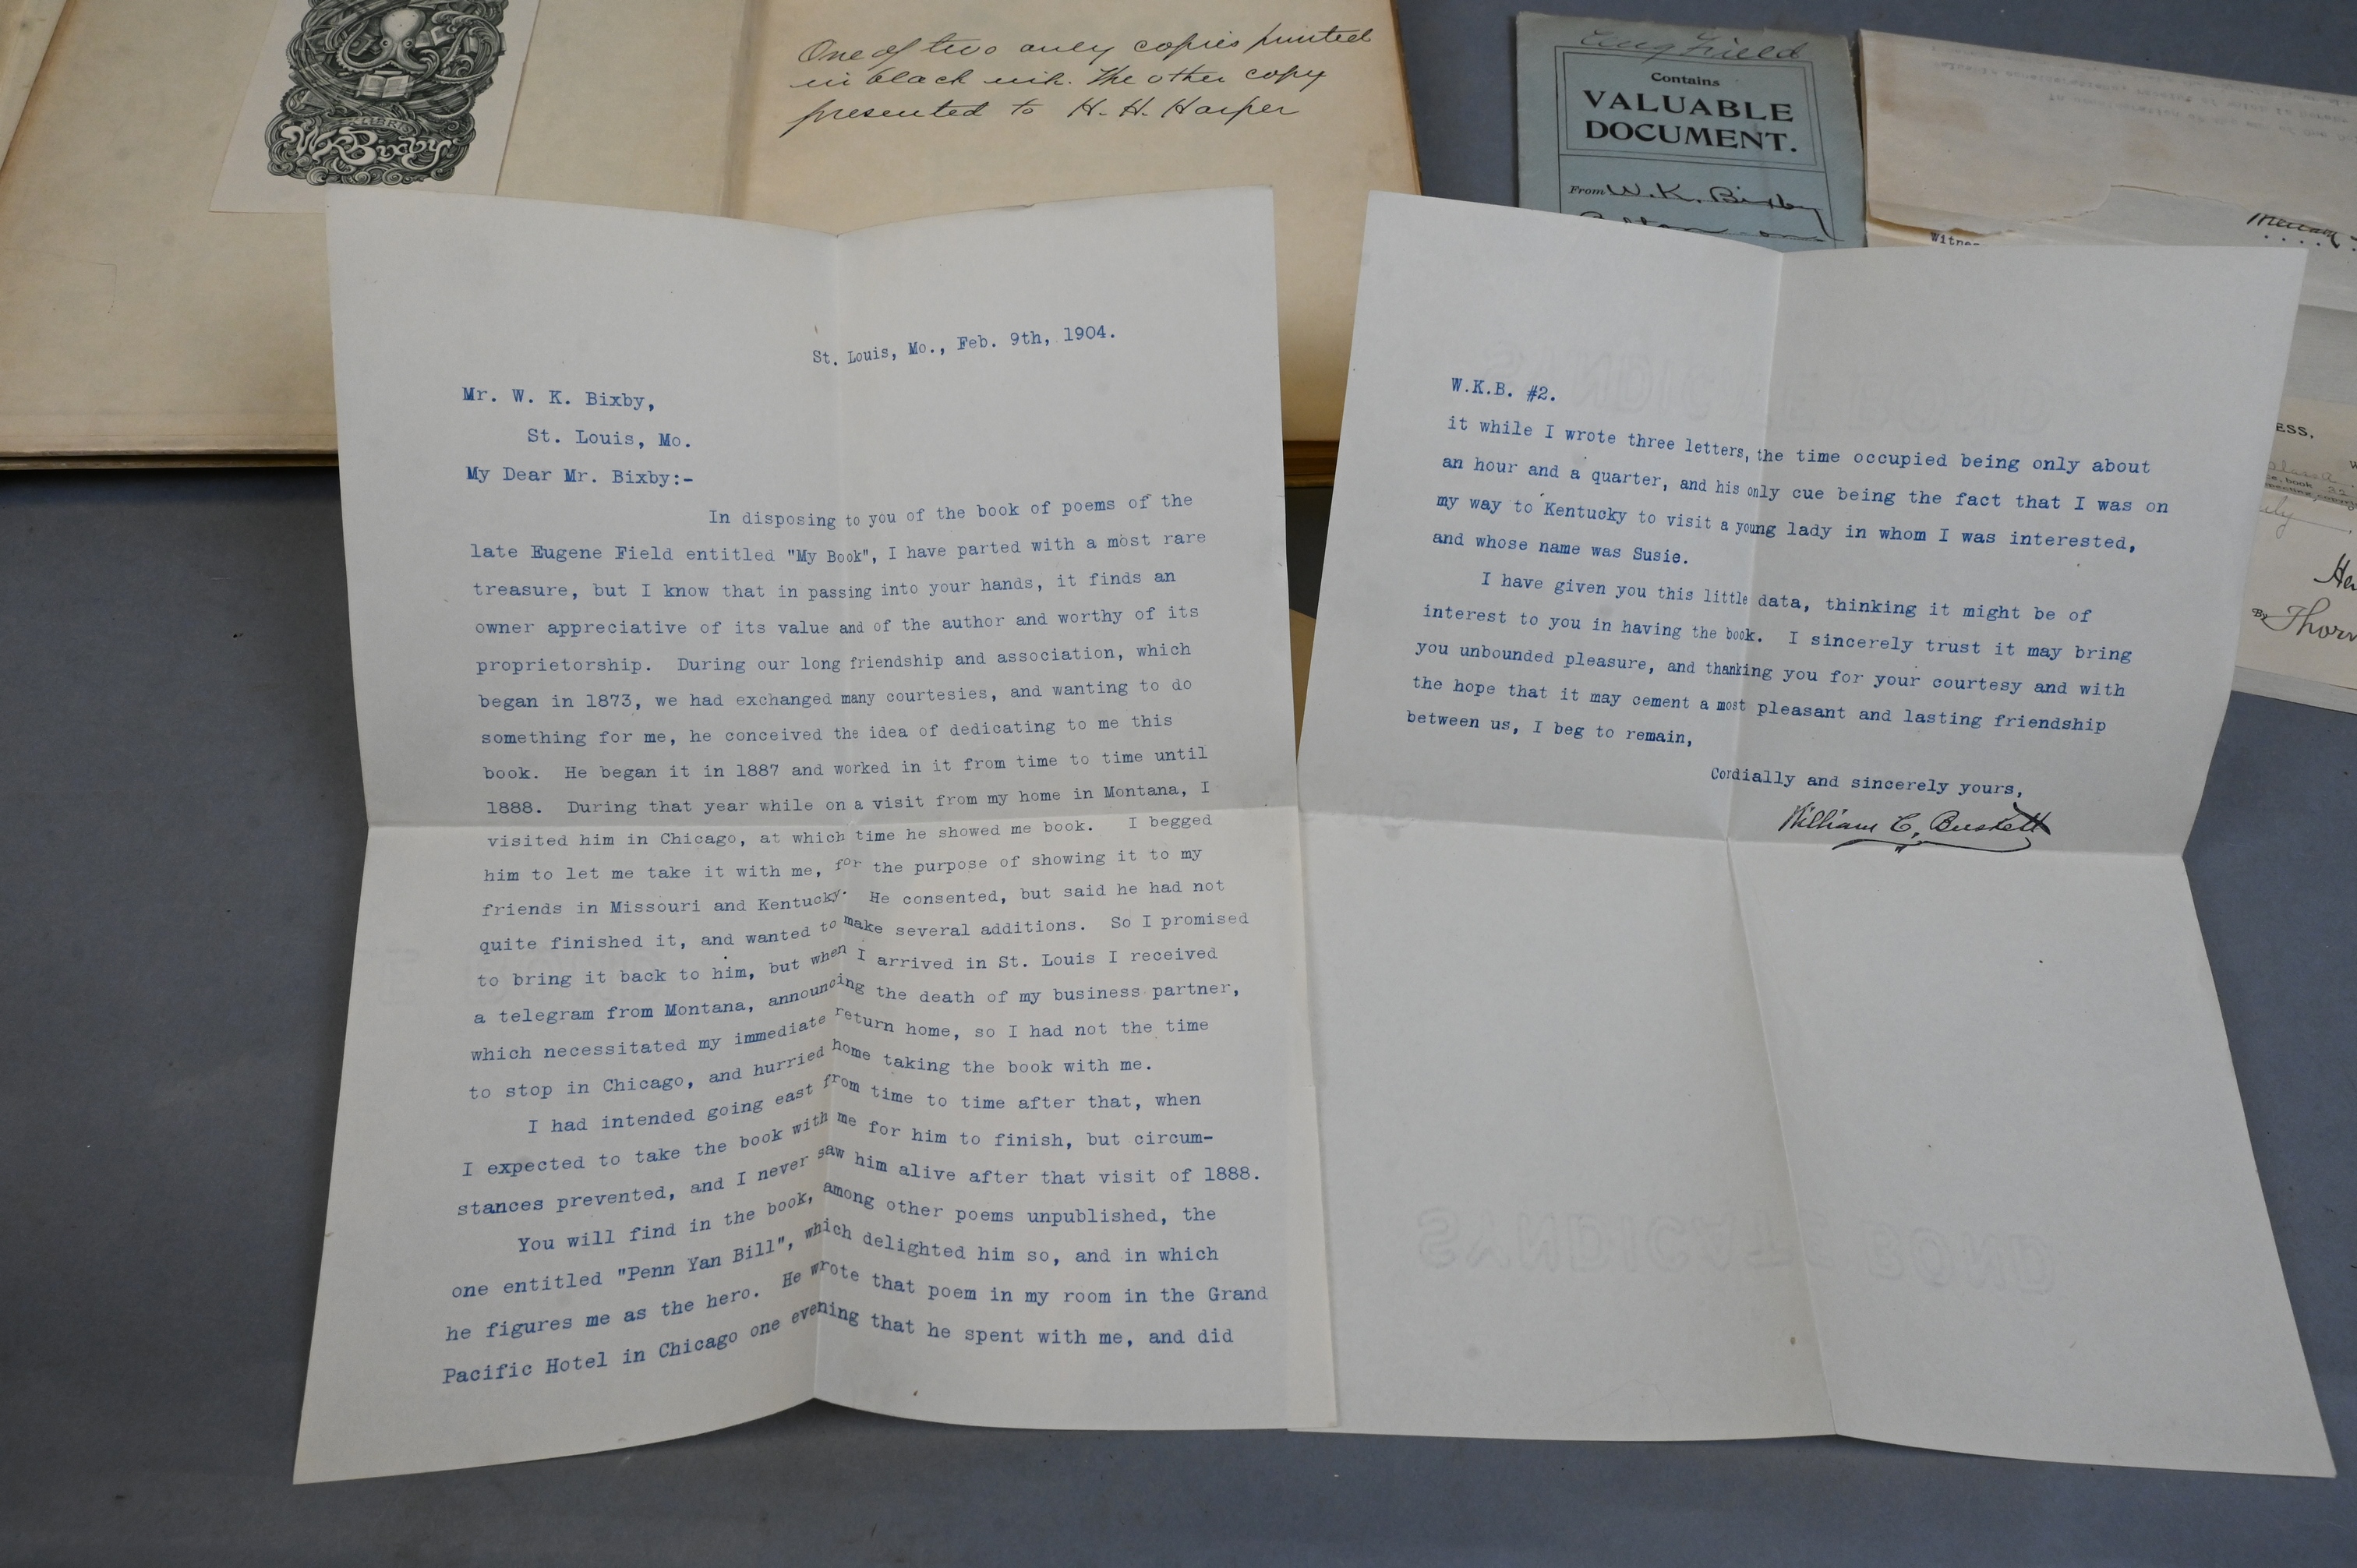 EX LIBRIS
W.K. Bixby
One of two only copies printed
in black ink. The other copy
presented to H. H. Harper
Eug Field
Contains
VALUABLE
DOCUMENT.
From W. K. Bixby
St. Louis, Mo., Feb. 9th, 1904.
Mr. W. K. Bixby,
St. Louis, Mo.
My Dear Mr. Bixby:-
In disposing to you of the book of poems of the
late Eugene Field entitled "My Book", I have parted with a most rare
treasure, but I know that in passing into your hands, it finds an
owner appreciative of its value and of the author and worthy of its
proprietorship. During our long friendship and association, which
began in 1873, we had exchanged many courtesies, and wanting to do
something for me, he conceived the idea of dedicating to me this
book. He began it in 1887 and worked in it from time to time until
1888. During that year while on a visit from my home in Montana, I
visited him in Chicago, at which time he showed me book. I begged
him to let me take it with me, for the purpose of showing it to my
friends in Missouri and Kentucky. He consented, but said he had not
quite finished it, and wanted to make several additions. So I promised
to bring it back to him, but when I arrived in St. Louis I received
a telegram from Montana, announcing the death of my business partner,
which necessitated my immediate return home, so I had not the time
to stop in Chicago, and hurried home taking the book with me.
I had intended going east from time to time after that, when
I expected to take the book with me for him to finish, but circum-
stances prevented, and I never saw him alive after that visit of 1888.
You will find in the book, among other poems unpublished, the
one entitled "Penn Yan Bill", which delighted him so, and in which
he figures me as the hero. He wrote that poem in my room in the Grand
Pacific Hotel in Chicago one evening that he spent with me, and did
W.K.B. #2.
it while I wrote three letters, the time occupied being only about
an hour and a quarter, and his only cue being the fact that I was on
my way to Kentucky to visit a young lady in whom I was interested,
and whose name was Susie.
I have given you this little data, thinking it might be of
interest to you in having the book. I sincerely trust it may bring
you unbounded pleasure, and thanking you for your courtesy and with
the hope that it may cement a most pleasant and lasting friendship
between us, I beg to remain,
Cordially and sincerely yours,
William C. Buskett
SYNDICATE BOND
Witne
ESS.
By Thorv